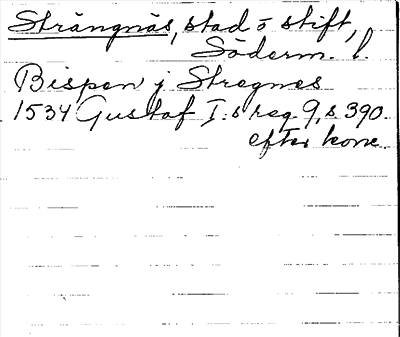 Strängnäs, stad o stift,
Söderm. l.
Bispen j Stregnes
1534 Gustaf I:s reg 9, s 390
efter konc.